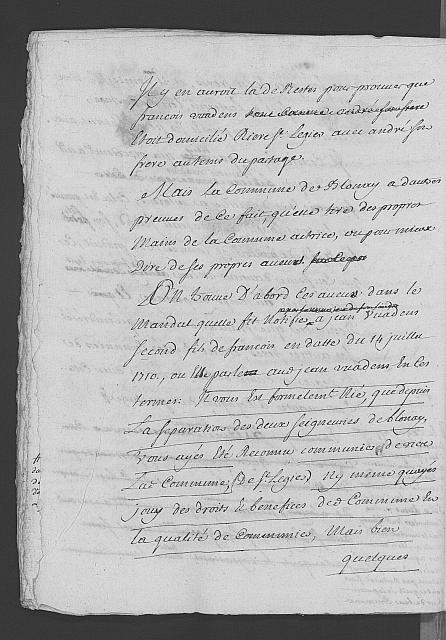 Il y en auroit la de Restes pour prouver que
francois vuadens
Etoit domicilié Riere St. Legier avec andré son
frere au tems du partage.
Mais la Commune de Blonay a d'autres
preuves de Ce fait, qu'elle tire des propres
Mains de la Commune actrice, ou pour mieux
Dire de ses propres aveux.
On trouve D'abord Ces aveux dans le
Mandat quelle fit Notifier a jean vuadens
second fils de francois en datte du 14 juillet
1710, ou Elle parle aud. jean vuadens en Ces
termes: Il vous Est formelement Nié, que depuis
La separation des deux seigneuries de blonay,
Vous ayés Eté Reconnu communier de notre
Lad. Commune, (de St. Legier) Ny même qu'ayés
jouy des droits & benefices de d. Commune En
la qualité de Communier, Mais bien
quelques